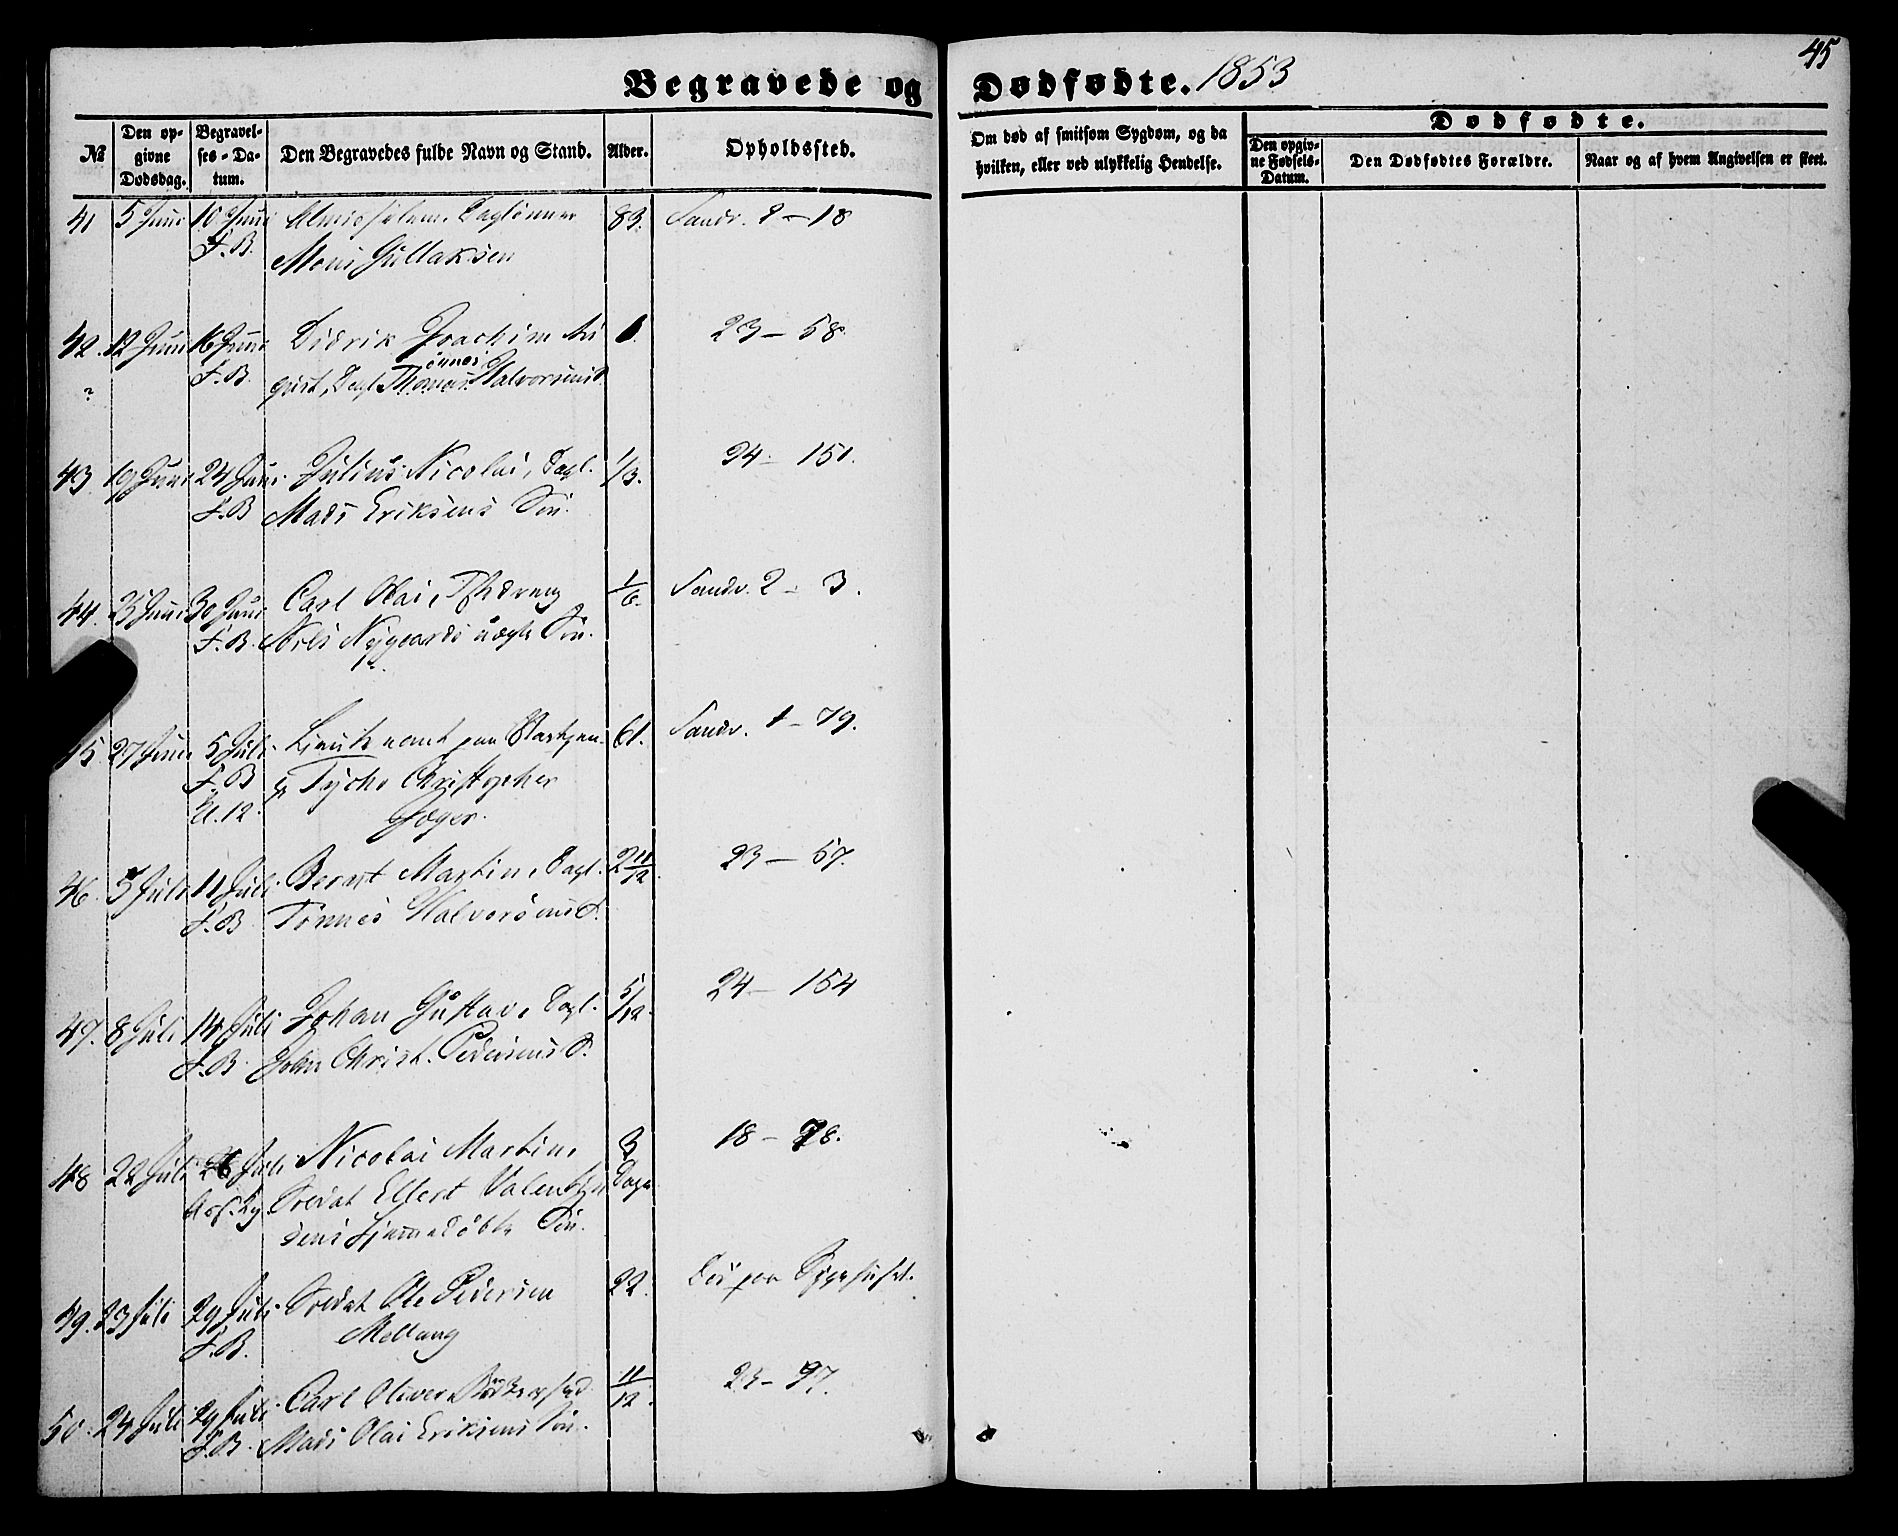 Begravede og Dødfødte. 1853
45
№
Den op-
givne
Dødsdag.
Begravel-
ses-Da-
tum.
Den Begravedes fulde Navn og Stand.
Alder.
Opholdssted.
Om død af smitsom Sygdom, og da
hvilken, eller ved ulykkelig Hendelse.
Dødfødte.
Den opgiv-
ne Fødsels-
Datum.
Den Dødfødtes Forældre.
Naar og af hvem Angivelsen er skeet.
41 5 Juni 10 Juni Almisselem, Daglønner 83. Sandv. 2-18
F.B. Mons Gullaksen
42. 12 Juni 16 Juni Didrik Joachim Au 1. 23-58.
F.B. gust, Dagl. Tønnes Halvorsens S.
43. 19 Juni 24 Juni Julius Nicolai, Dagl. 1/3. 24-151.
F.B Mads Eriksens Søn.
44. 25 Juni 30 Juni Carl Olai, 1/6. Sandv. 2-3.
F.B. Nils Nygaards uægte Søn.
45 27 Juni 5 Juli Lieutenant 61. Sandv. 1-79.
F.B Tycho Christopher
Kl. 12. Jæger.
46. 5 Juli 11 Juli Bernt Martin, Dagl. 2 11/12. 23-57.
F.B Tønnes Halvorsens S.
47. 8 Juli 14 Juli Johan Gustav, Dagl. 5/12. 24-154
F.B. John Christ. Pedersens S.
48 22 Juli 26 Juli Nicolai Martin, 3 18-78.
Soldat Ellert Valentin Dage
sens hjemmedøbte Søn.
49. 23 Juli 29 Juli Soldat Ole Pedersen 22. Død paa Sygehuset.
F.B. Mellang
50. 24 Juli 29 Juli Carl Oliver 11/12. 23-97.
F.B. Mads Olai Eriksens Søn.